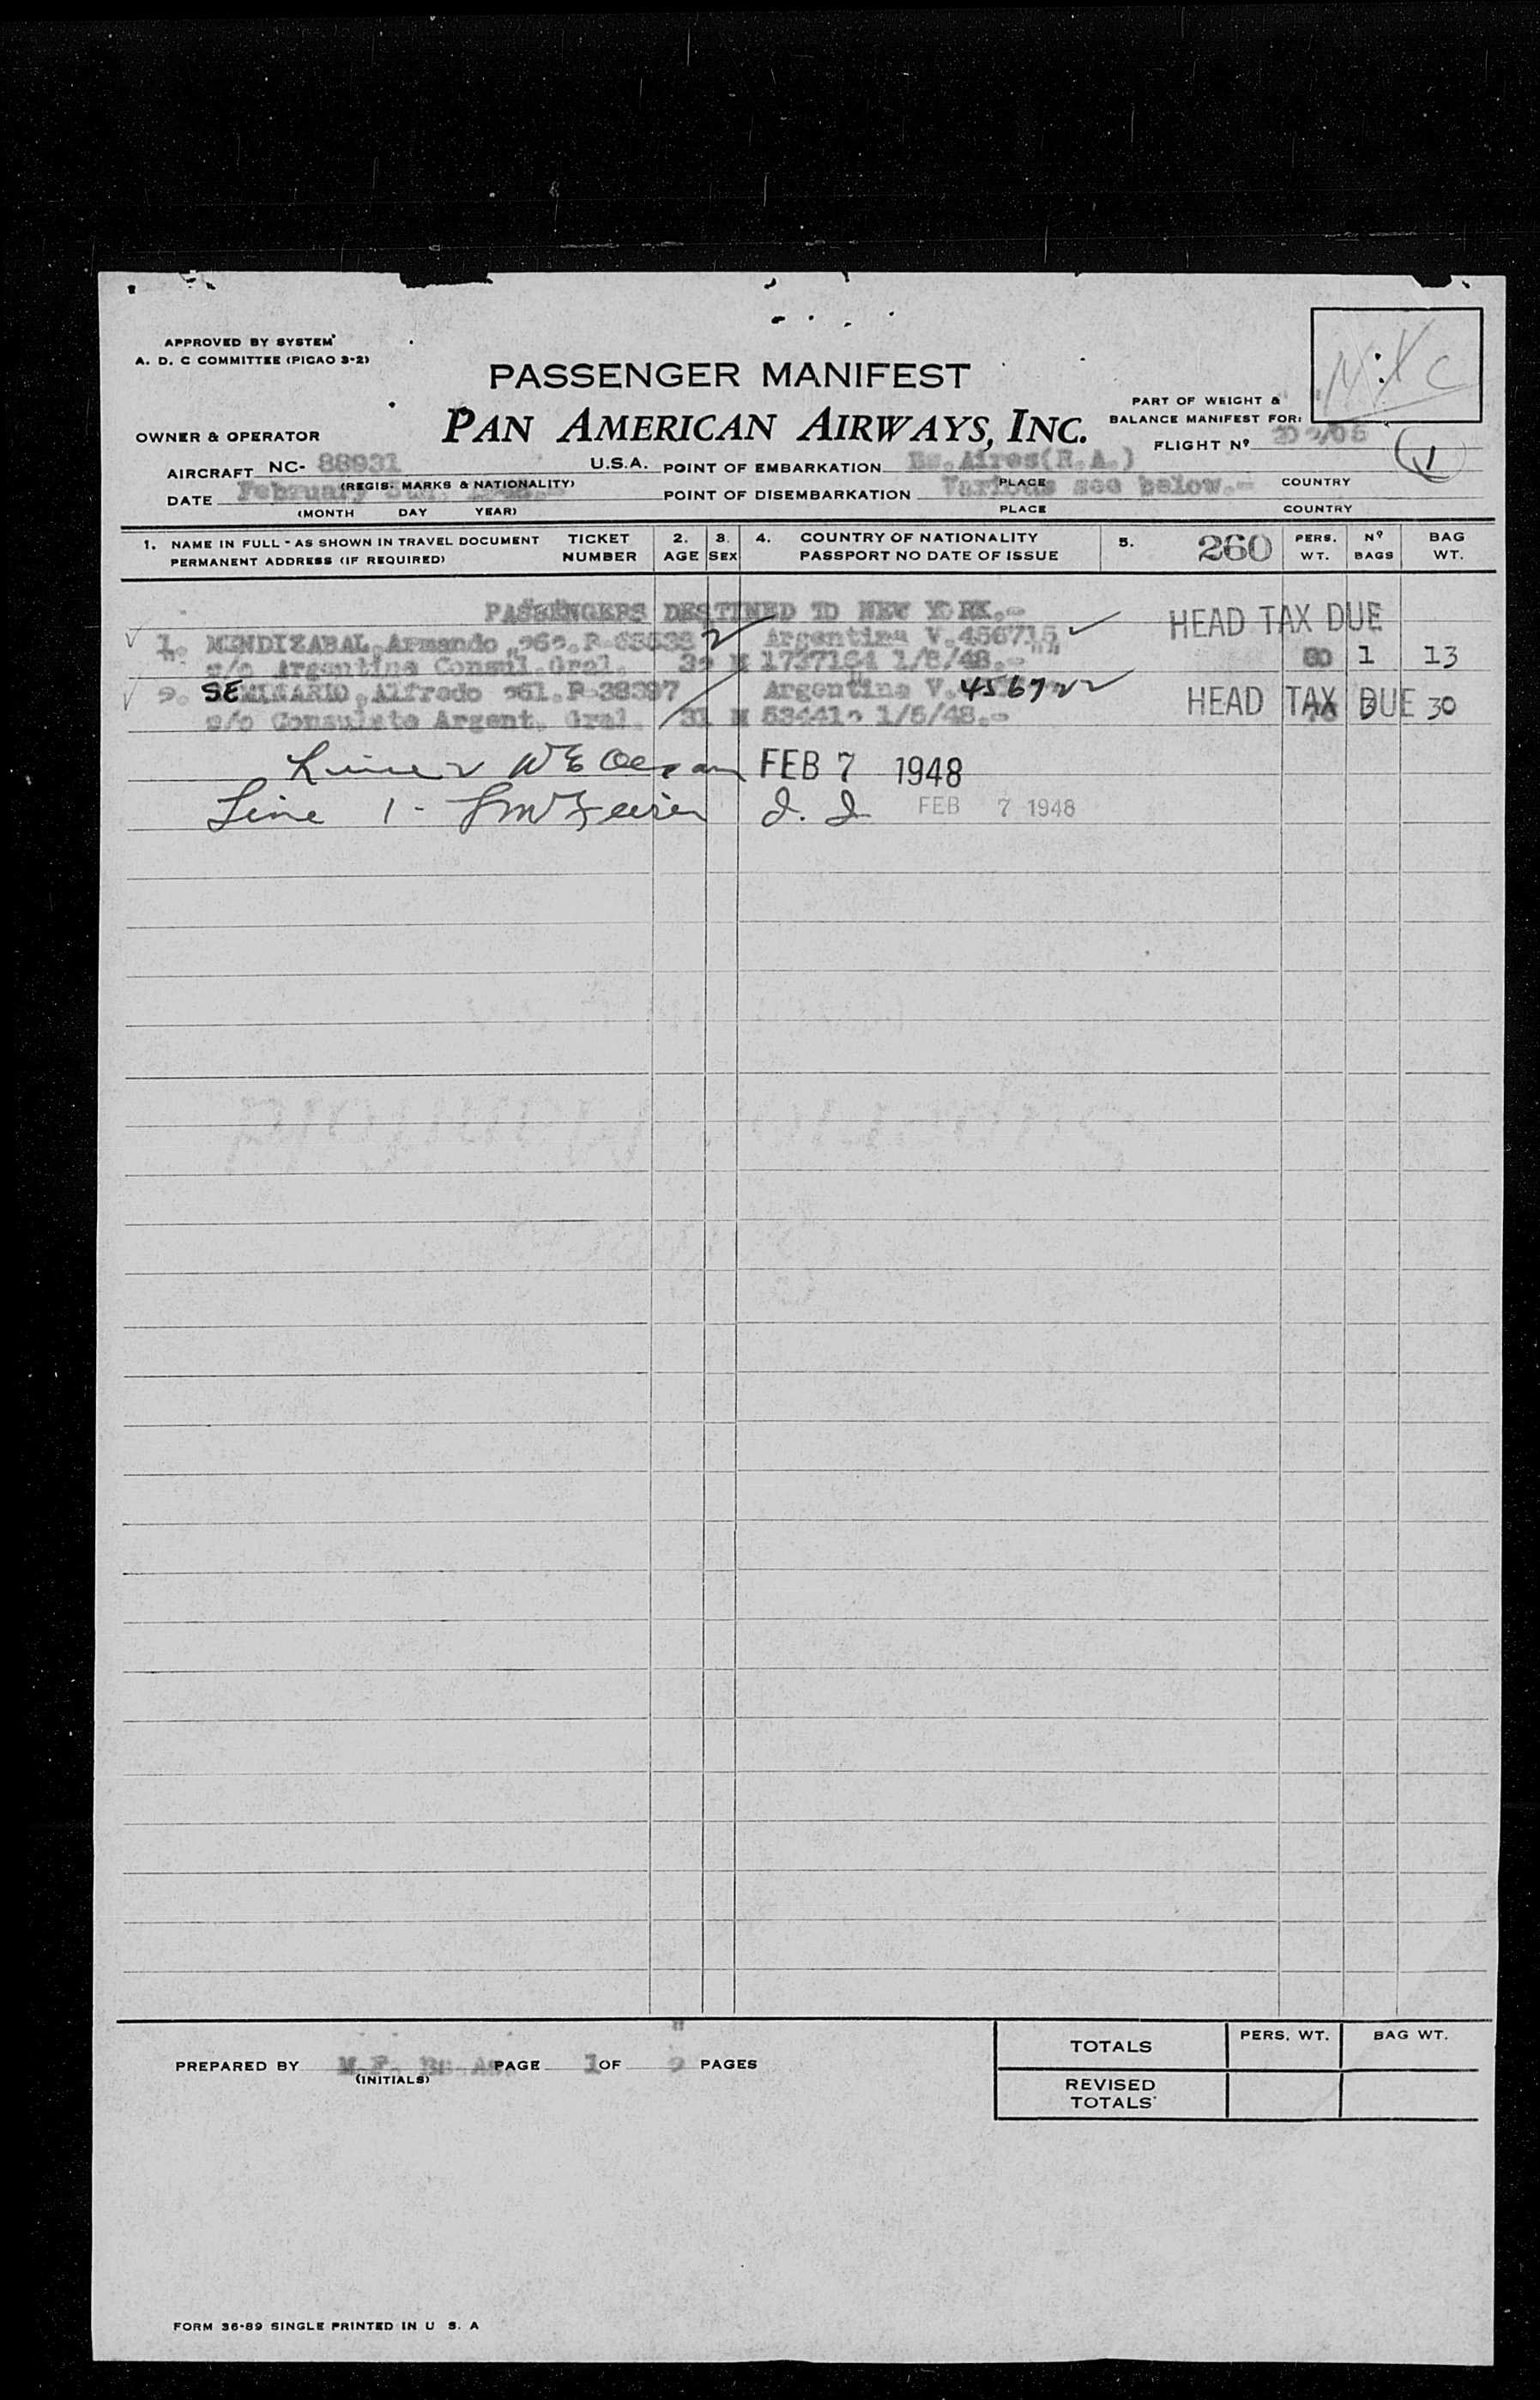 APPROVED BY SYSTEM
A. D. C COMMITTEE (PICAO 3-2)
PASSENGER MANIFEST
PAN AMERICAN AIRWAYS, INC.
PART OF WEIGHT &
BALANCE MANIFEST FOR:
FLIGHT Nº
1
OWNER & OPERATOR
AIRCRAFT NC- 88931 U.S.A. POINT OF EMBARKATION Bs.Aires(R.A.)
(REGIS. MARKS & NATIONALITY) PLACE COUNTRY
DATE February POINT OF DISEMBARKATION Various see below.-
(MONTH DAY YEAR) PLACE COUNTRY
1. NAME IN FULL - AS SHOWN IN TRAVEL DOCUMENT TICKET 2. 3. 4. COUNTRY OF NATIONALITY 5. 260 PERS. Nº BAG
PERMANENT ADDRESS (IF REQUIRED) NUMBER AGE SEX PASSPORT NO DATE OF ISSUE WT. BAGS WT.
PASSENGERS DESTINED TO NEW YORK.-
HEAD TAX DUE
1. MENDIZABAL, Armando Argentina V.456715
c/o Argentina Consul.Gral. M 1/8/48.- 80 1 13
SEMINARIO, Alfredo R-38397 Argentina V. 456722
c/o Consulato Argent. Gral. 31 M 1/5/48.- HEAD TAX DUE 30
FEB 7 1948
Line 1 - FEB 7 1948
PREPARED BY M.F. Bs.As. PAGE 1 OF PAGES
(INITIALS)
TOTALS PERS. WT. BAG WT.
REVISED
TOTALS
FORM 36-89 SINGLE PRINTED IN U S. A